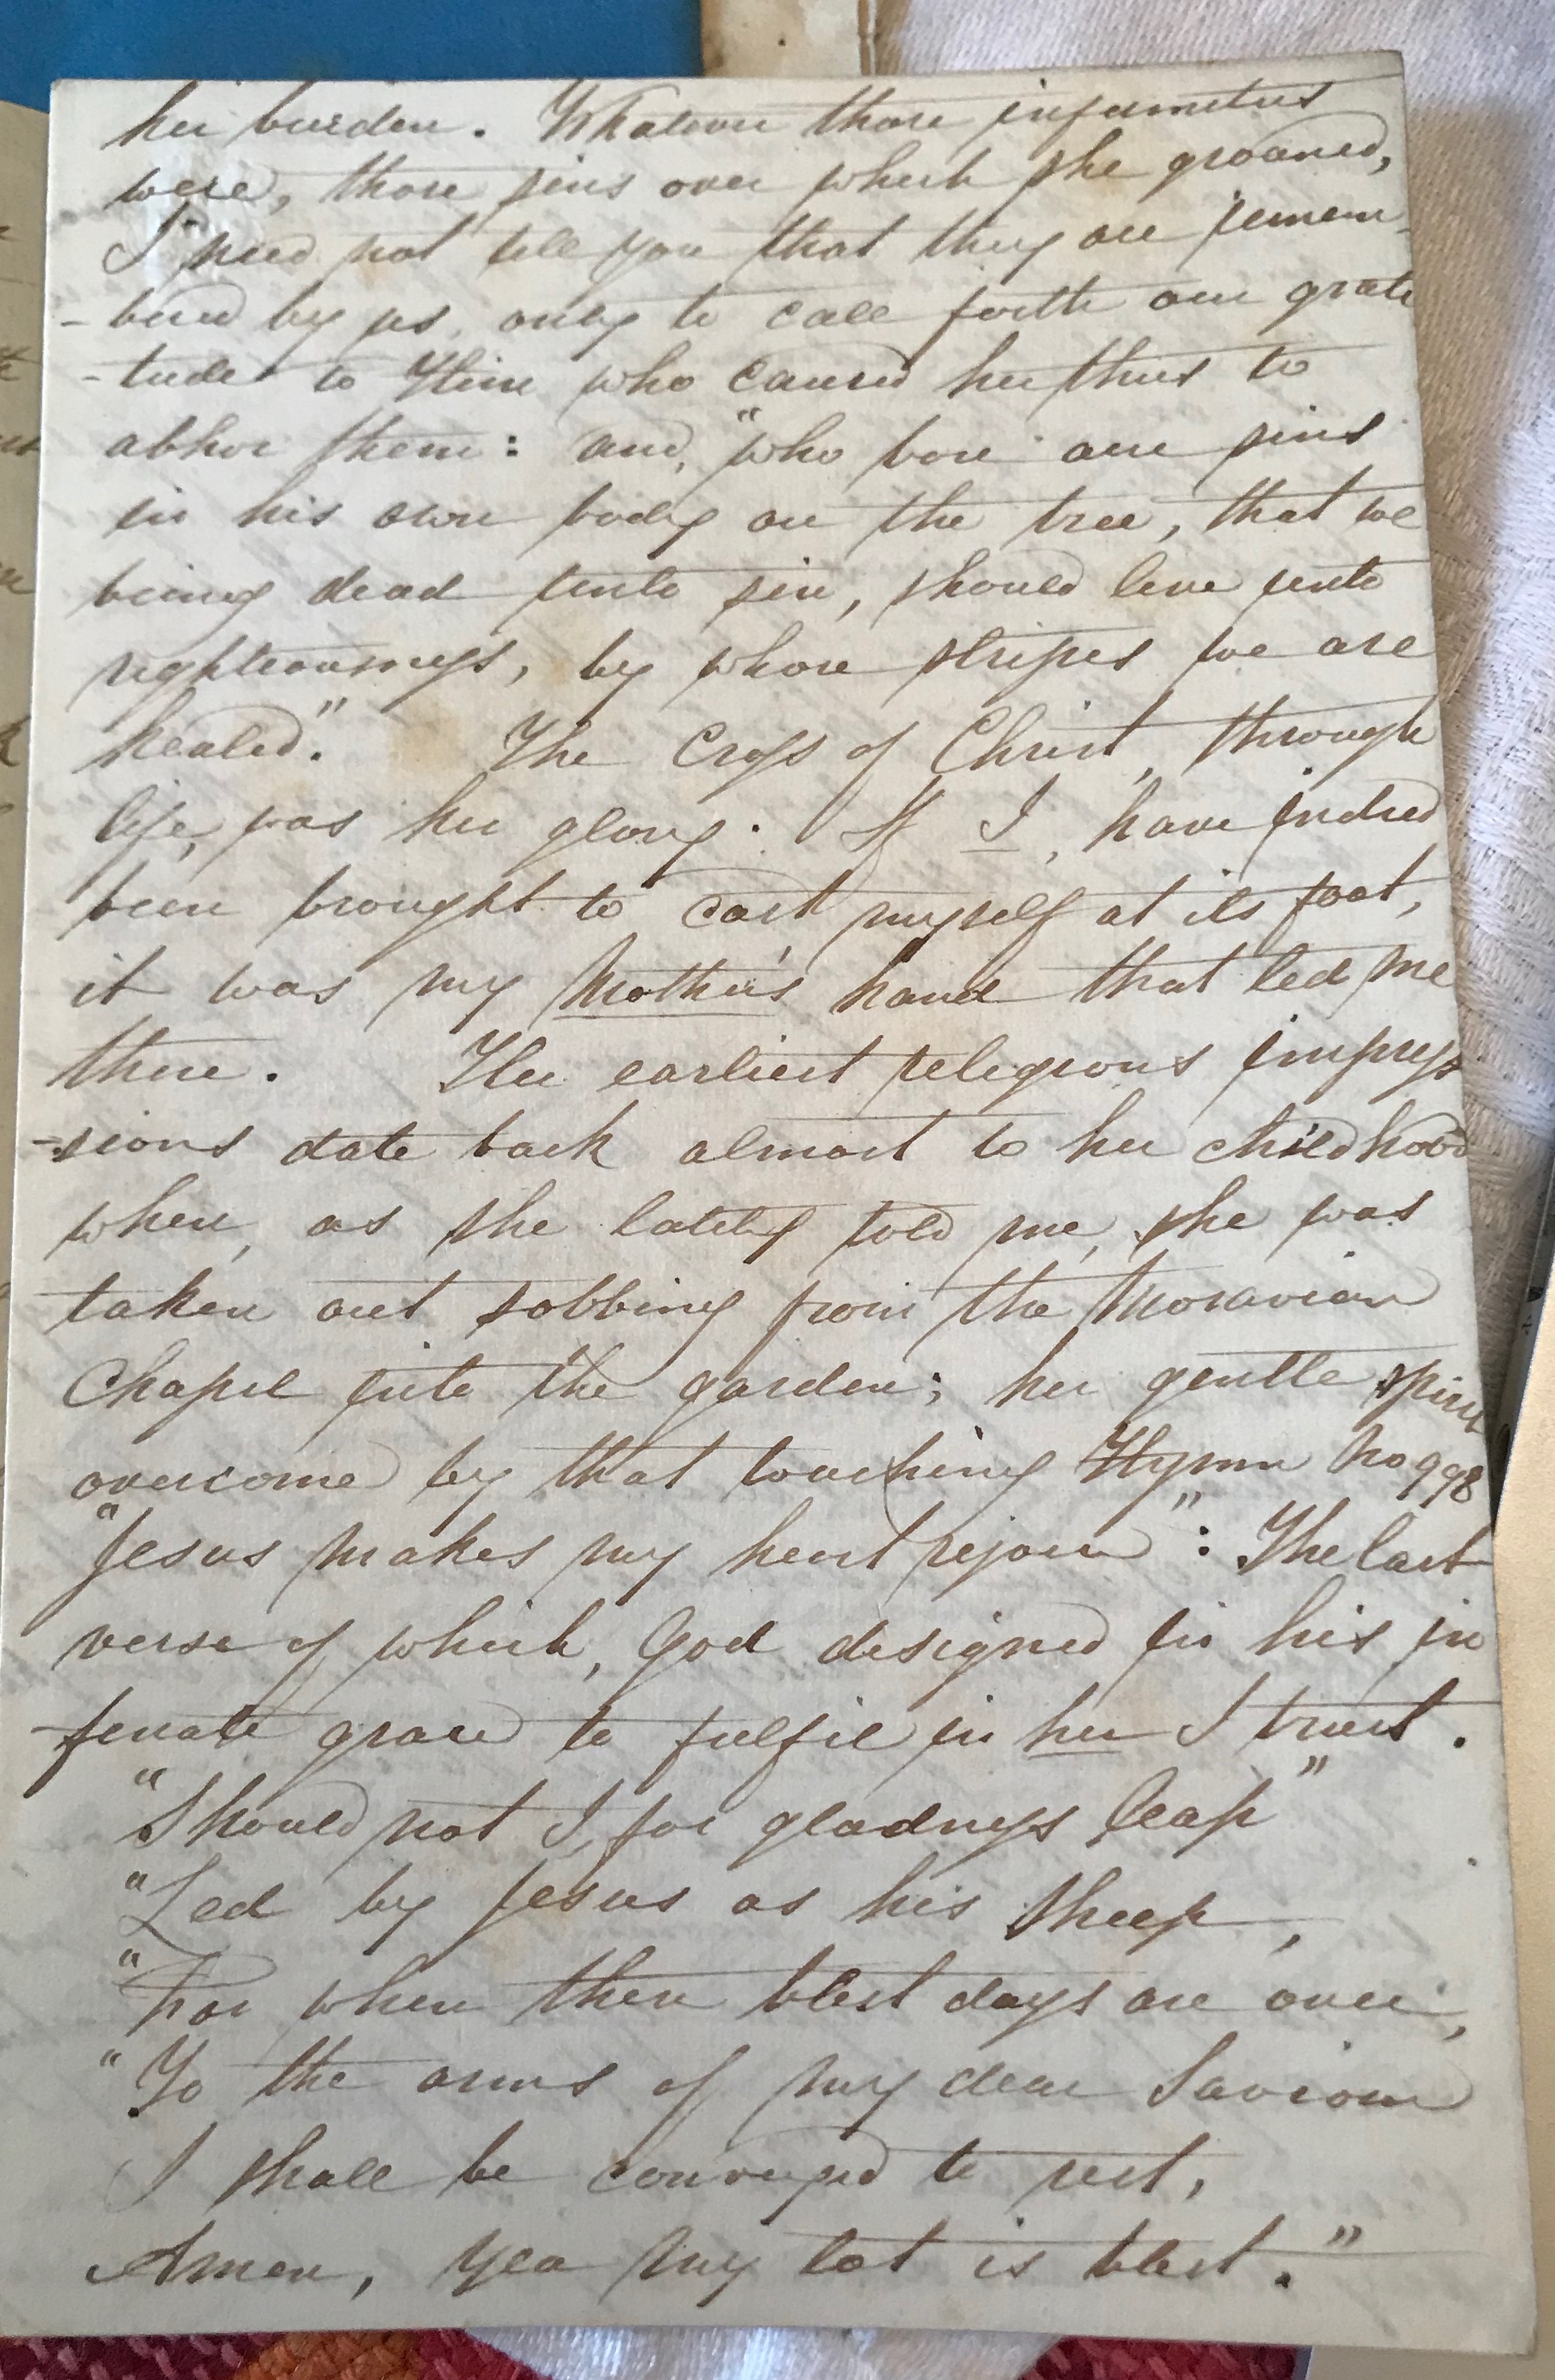 her burden. Whatever those infirmities
were, those sins over which she groaned,
I need not tell you that they are remem-
-bered by us, only to call forth our grati
-tude to Him who caused her thus to
abhor them: and, "who bore our sins
in his own body on the tree, that we
being dead unto sin, should live unto
righteousness, by whose stripes we are
healed." The Cross of Christ, through
life, was her glory. If I, have indeed
been brought to cast myself at its foot,
it was my Mother's hand that led me
there. Her earliest religious impres
-sions date back almost to her childhood
when, as she lately told me, she was
taken out sobbing from the Moravian
Chapel into the garden; her gentle spirit
overcome by that touching Hymn No 998
"Jesus makes my heart rejoice": The last
verse of which, God designed in his in
-finite grace to fulfil in her I trust.
"Should not I for gladness leap"
"Led by Jesus as his sheep,
"For when these blest days are over,
"To the arms of my dear Saviour
I shall be conveyed to rest,
Amen, yea my lot is blest."